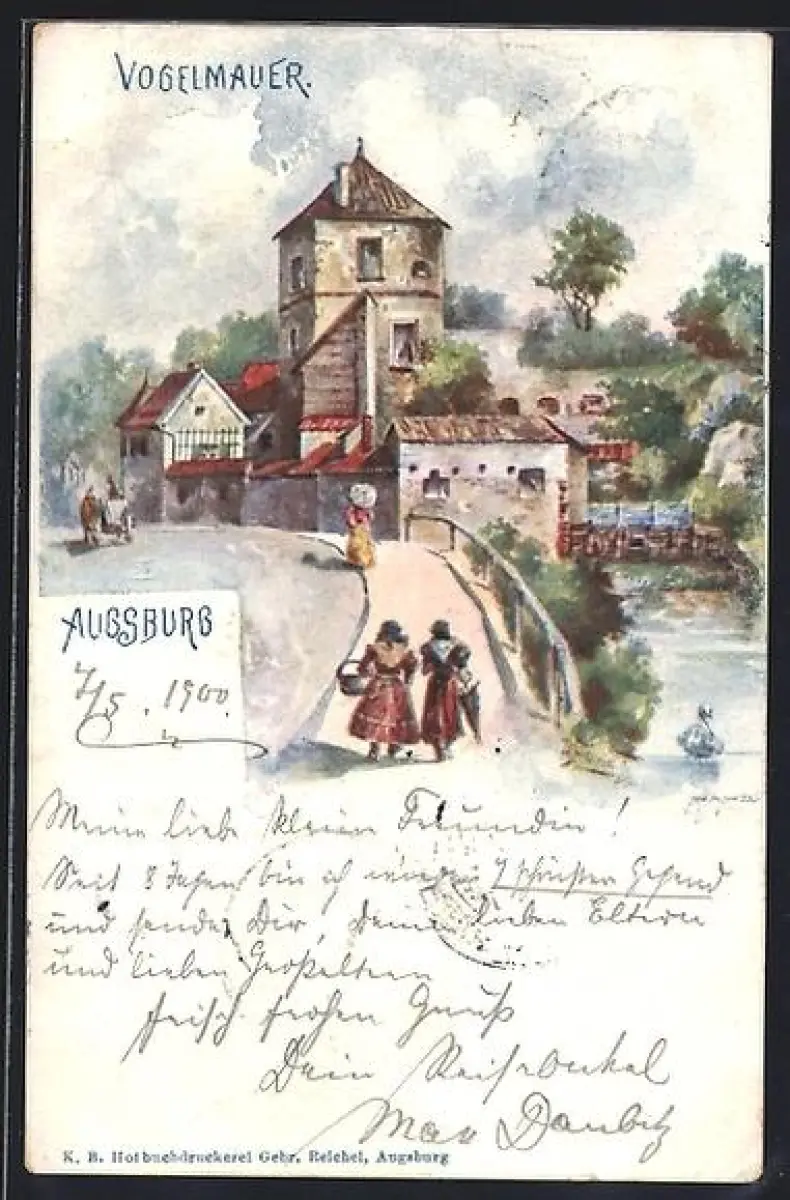 VOGELMAUER.
AUGSBURG
7/5. 1900.
Meine liebe kleine Freundin!
Seit 8 Tagen bin ich in schönster Gegend
und sende Dir, Deinen lieben Eltern
und lieben Großeltern
frisch frohen Gruß
Dein Reiseonkel
Max Daubitz
K. B. Hofbuchdruckerei Gebr. Reichel, Augsburg